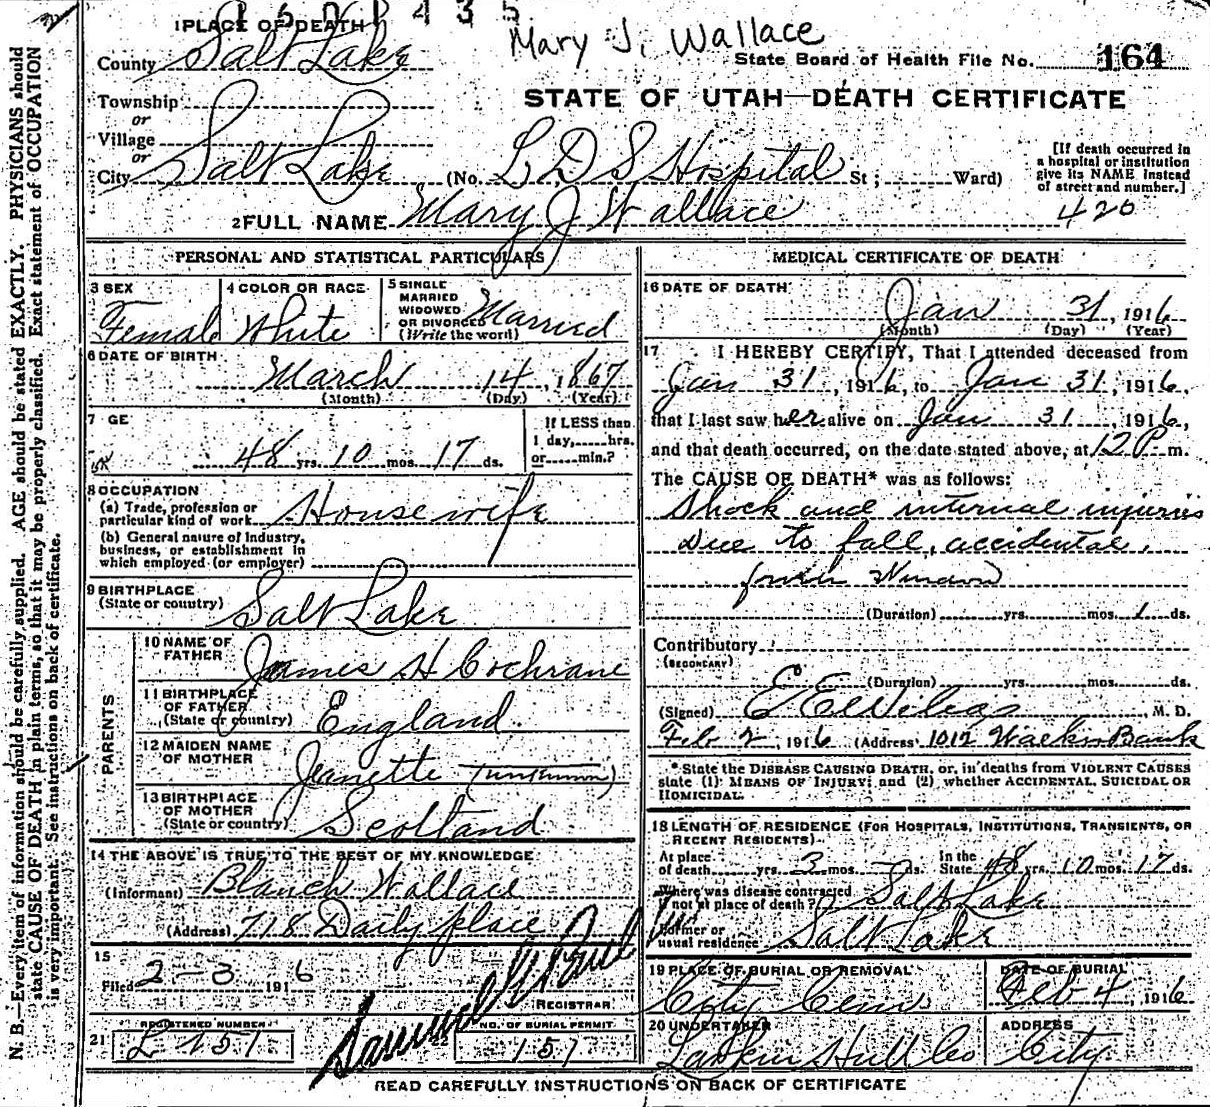 Mary J. Wallace
1 PLACE OF DEATH
County Salt Lake
State Board of Health File No. 164
Township
or
Village
or
City Salt Lake
STATE OF UTAH—DEATH CERTIFICATE
(No. L D S Hospital St; Ward)
[If death occurred in
a hospital or institution
give its NAME instead
of street and number.]
420
2 FULL NAME Mary J Wallace
PERSONAL AND STATISTICAL PARTICULARS
3 SEX
Female
4 COLOR OR RACE
White
5 SINGLE
MARRIED
WIDOWED
OR DIVORCED
(Write the word)
Married
6 DATE OF BIRTH
March 14, 1867
(Month) (Day) (Year)
7 GE
48 yrs. 10 mos. 17 ds.
If LESS than
1 day, hrs.
or min.?
8 OCCUPATION
(a) Trade, profession or
particular kind of work Housewife
(b) General nature of Industry,
business, or establishment in
which employed (or employer)
9 BIRTHPLACE
(State or country) Salt Lake
PARENTS
10 NAME OF
FATHER James H Cochrane
11 BIRTHPLACE
OF FATHER
(State or country) England
12 MAIDEN NAME
OF MOTHER Jeanette (unknown)
13 BIRTHPLACE
OF MOTHER
(State or country) Scotland
14 THE ABOVE IS TRUE TO THE BEST OF MY KNOWLEDGE
(Informant) Blanch Wallace
(Address) 718 Daily place
15
Filed 2-3 1916
REGISTRAR
21
REGISTERED NUMBER
L 151
NO. OF BURIAL PERMIT
151
MEDICAL CERTIFICATE OF DEATH
16 DATE OF DEATH
Jan 31, 1916
(Month) (Day) (Year)
17 I HEREBY CERTIFY, That I attended deceased from
Jan 31, 1916, to Jan 31, 1916,
that I last saw her alive on Jan 31, 1916,
and that death occurred, on the date stated above, at 12 P m.
The CAUSE OF DEATH* was as follows:
Shock and internal injuries
due to fall, accidental,
(Duration) yrs. mos. 1 ds.
Contributory
(SECONDARY)
(Duration) yrs. mos. ds.
(Signed) E E Wilcox, M. D.
Feb 2, 1916 (Address) 1012 Walker Bank
*State the DISEASE CAUSING DEATH, or, in deaths from VIOLENT CAUSES
state (1) MEANS OF INJURY; and (2) whether ACCIDENTAL, SUICIDAL OR
HOMICIDAL.
18 LENGTH OF RESIDENCE (FOR HOSPITALS, INSTITUTIONS, TRANSIENTS, OR
RECENT RESIDENTS)
At place
of death yrs. 3 mos. ds.
In the
State 48 yrs. 10 mos. 17 ds.
Where was disease contracted
if not at place of death? Salt Lake
Former or
usual residence Salt Lake
19 PLACE OF BURIAL OR REMOVAL
City Cem
DATE OF BURIAL
Feb 4, 1916
20 UNDERTAKER
Larkin Hull Co
ADDRESS
City
READ CAREFULLY INSTRUCTIONS ON BACK OF CERTIFICATE
N. B.—Every item of information should be carefully supplied. AGE should be stated EXACTLY. PHYSICIANS should
state CAUSE OF DEATH in plain terms, so that it may be properly classified. Exact statement of OCCUPATION
is very important. See instructions on back of certificate.